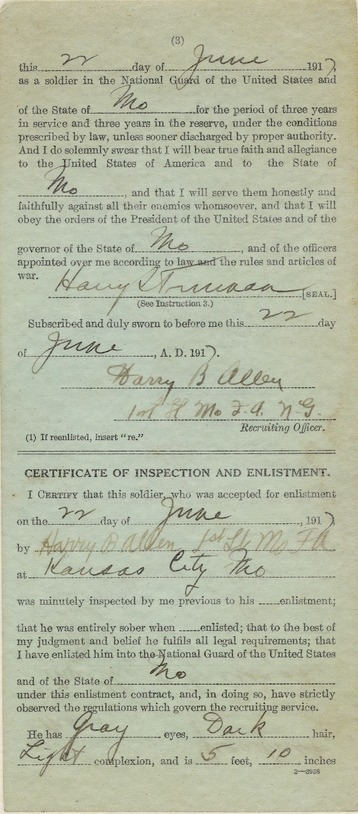 (3)
this 22 day of June, 1917,
as a soldier in the National Guard of the United States and
of the State of Mo for the period of three years
in service and three years in the reserve, under the conditions
prescribed by law, unless sooner discharged by proper authority.
And I do solemnly swear that I will bear true faith and allegiance
to the United States of America and to the State of
Mo, and that I will serve them honestly and
faithfully against all their enemies whomsoever, and that I will
obey the orders of the President of the United States and of the
governor of the State of Mo, and of the officers
appointed over me according to law and the rules and articles of
war.
Harry S Truman [SEAL.]
(See Instruction 3.)
Subscribed and duly sworn to before me this 22 day
of June, A. D. 1917.
Harry B Allen
1st Lt Mo F.A. N.G.
Recruiting Officer.
(1) If reenlisted, insert "re."
CERTIFICATE OF INSPECTION AND ENLISTMENT.
I CERTIFY that this soldier, who was accepted for enlistment
on the 22 day of June, 1917,
by Harry B Allen 1st Lt Mo FA
at Kansas City Mo
was minutely inspected by me previous to his enlistment;
that he was entirely sober when enlisted; that to the best of
my judgment and belief he fulfils all legal requirements; that
I have enlisted him into the National Guard of the United States
and of the State of Mo
under this enlistment contract, and, in doing so, have strictly
observed the regulations which govern the recruiting service.
He has Gray eyes, Dark hair,
Light complexion, and is 5 feet, 10 inches
2—3938